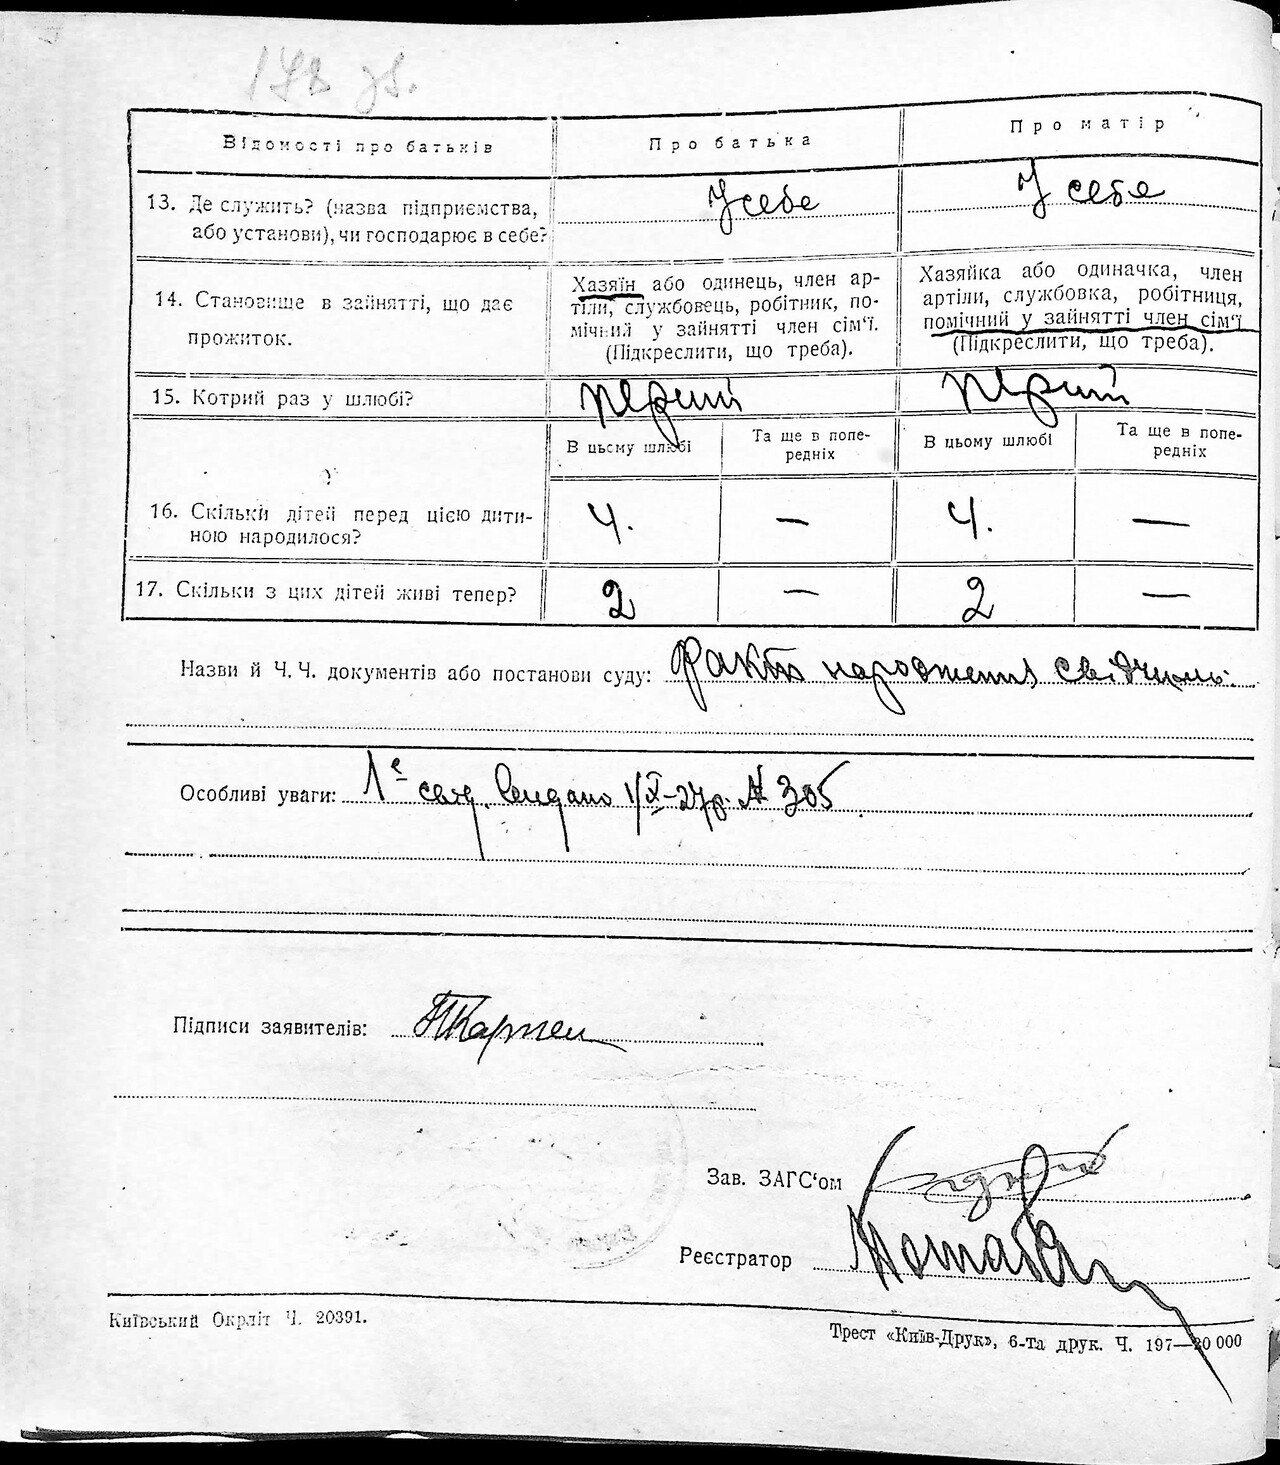 178 зв.
Відомості про батьків
Про батька
Про матір
13. Де служить? (назва підприємства,
або установи), чи господарює в себе?
У себе
У себе
14. Становище в зайнятті, що дає
прожиток.
Хазяїн або одинець, член ар-
тіли, службовець, робітник, по-
мічний у зайнятті член сім'ї.
(Підкреслити, що треба).
Хазяйка або одиначка, член
артіли, службовка, робітниця,
помічний у зайнятті член сім'ї
(Підкреслити, що треба).
15. Котрий раз у шлюбі?
перший
перший
В цьому шлюбі
Та ще в попе-
редніх
В цьому шлюбі
Та ще в попе-
редніх
16. Скільки дітей перед цією дити-
ною народилося?
4. — 4. —
17. Скільки з цих дітей живі тепер?
2 — 2 —
Назви й Ч. Ч. документів або постанови суду: факт народження
Особливі уваги: свід. Видано 1/X-27р. № 305
Підписи заявителів:
Зав. ЗАГС'ом
Реєстратор
Київський Окрліт Ч. 20391.
Трест «Київ-Друк», 6-та друк. Ч. 197—20 000